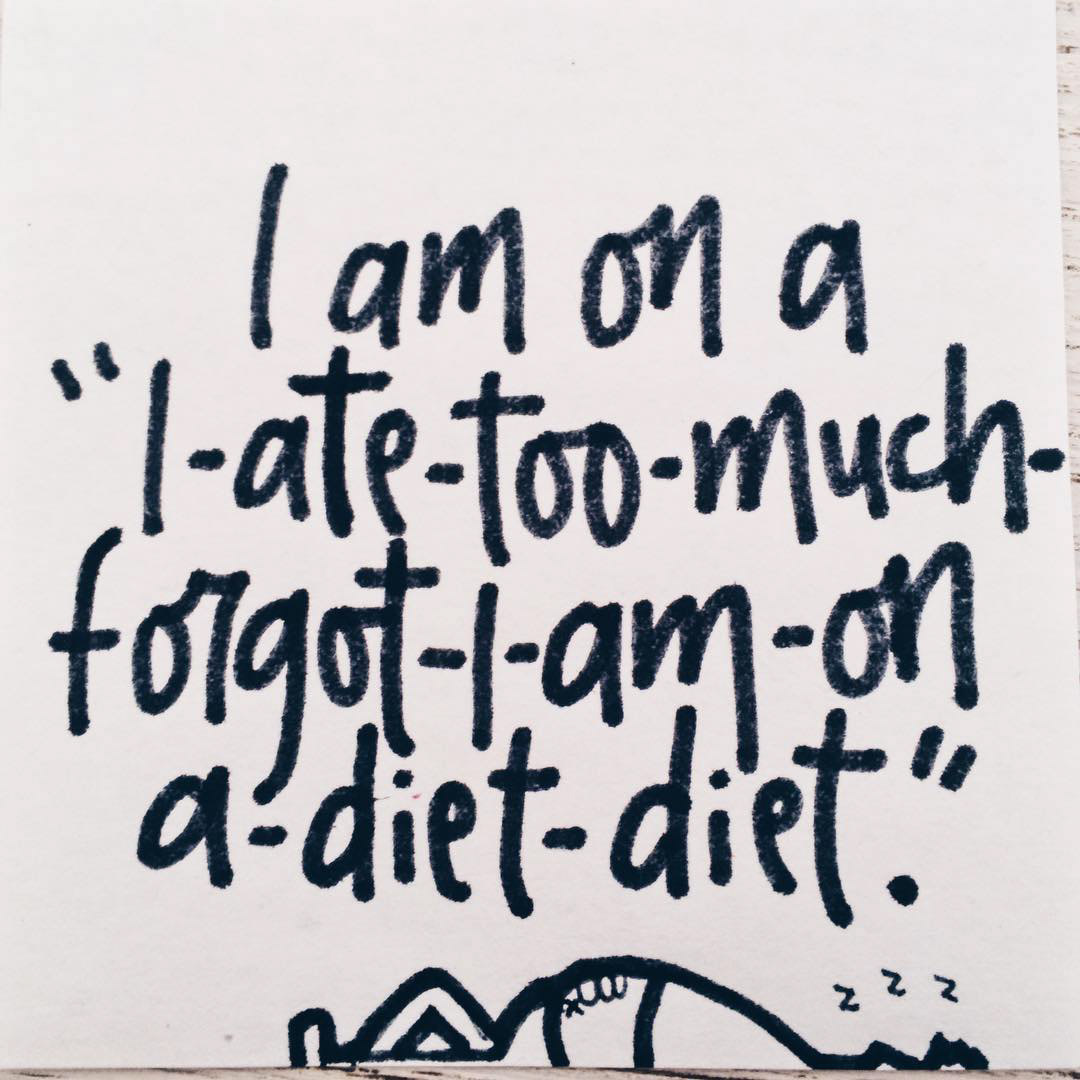 I am on a
"I-ate-too-much-
forgot-I-am-on
a-diet-diet."
z z z